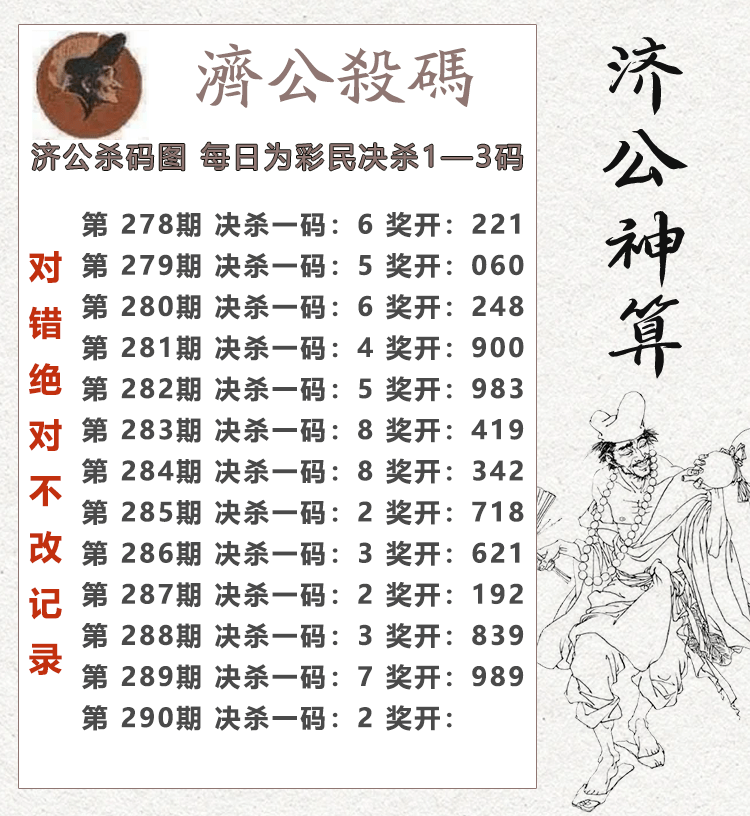 濟公殺碼
济公杀码图 每日为彩民决杀1—3码
第 278期 决杀一码：6 奖开：221
第 279期 决杀一码：5 奖开：060
第 280期 决杀一码：6 奖开：248
第 281期 决杀一码：4 奖开：900
第 282期 决杀一码：5 奖开：983
第 283期 决杀一码：8 奖开：419
第 284期 决杀一码：8 奖开：342
第 285期 决杀一码：2 奖开：718
第 286期 决杀一码：3 奖开：621
第 287期 决杀一码：2 奖开：192
第 288期 决杀一码：3 奖开：839
第 289期 决杀一码：7 奖开：989
第 290期 决杀一码：2 奖开：
对错绝对不改记录
济公神算